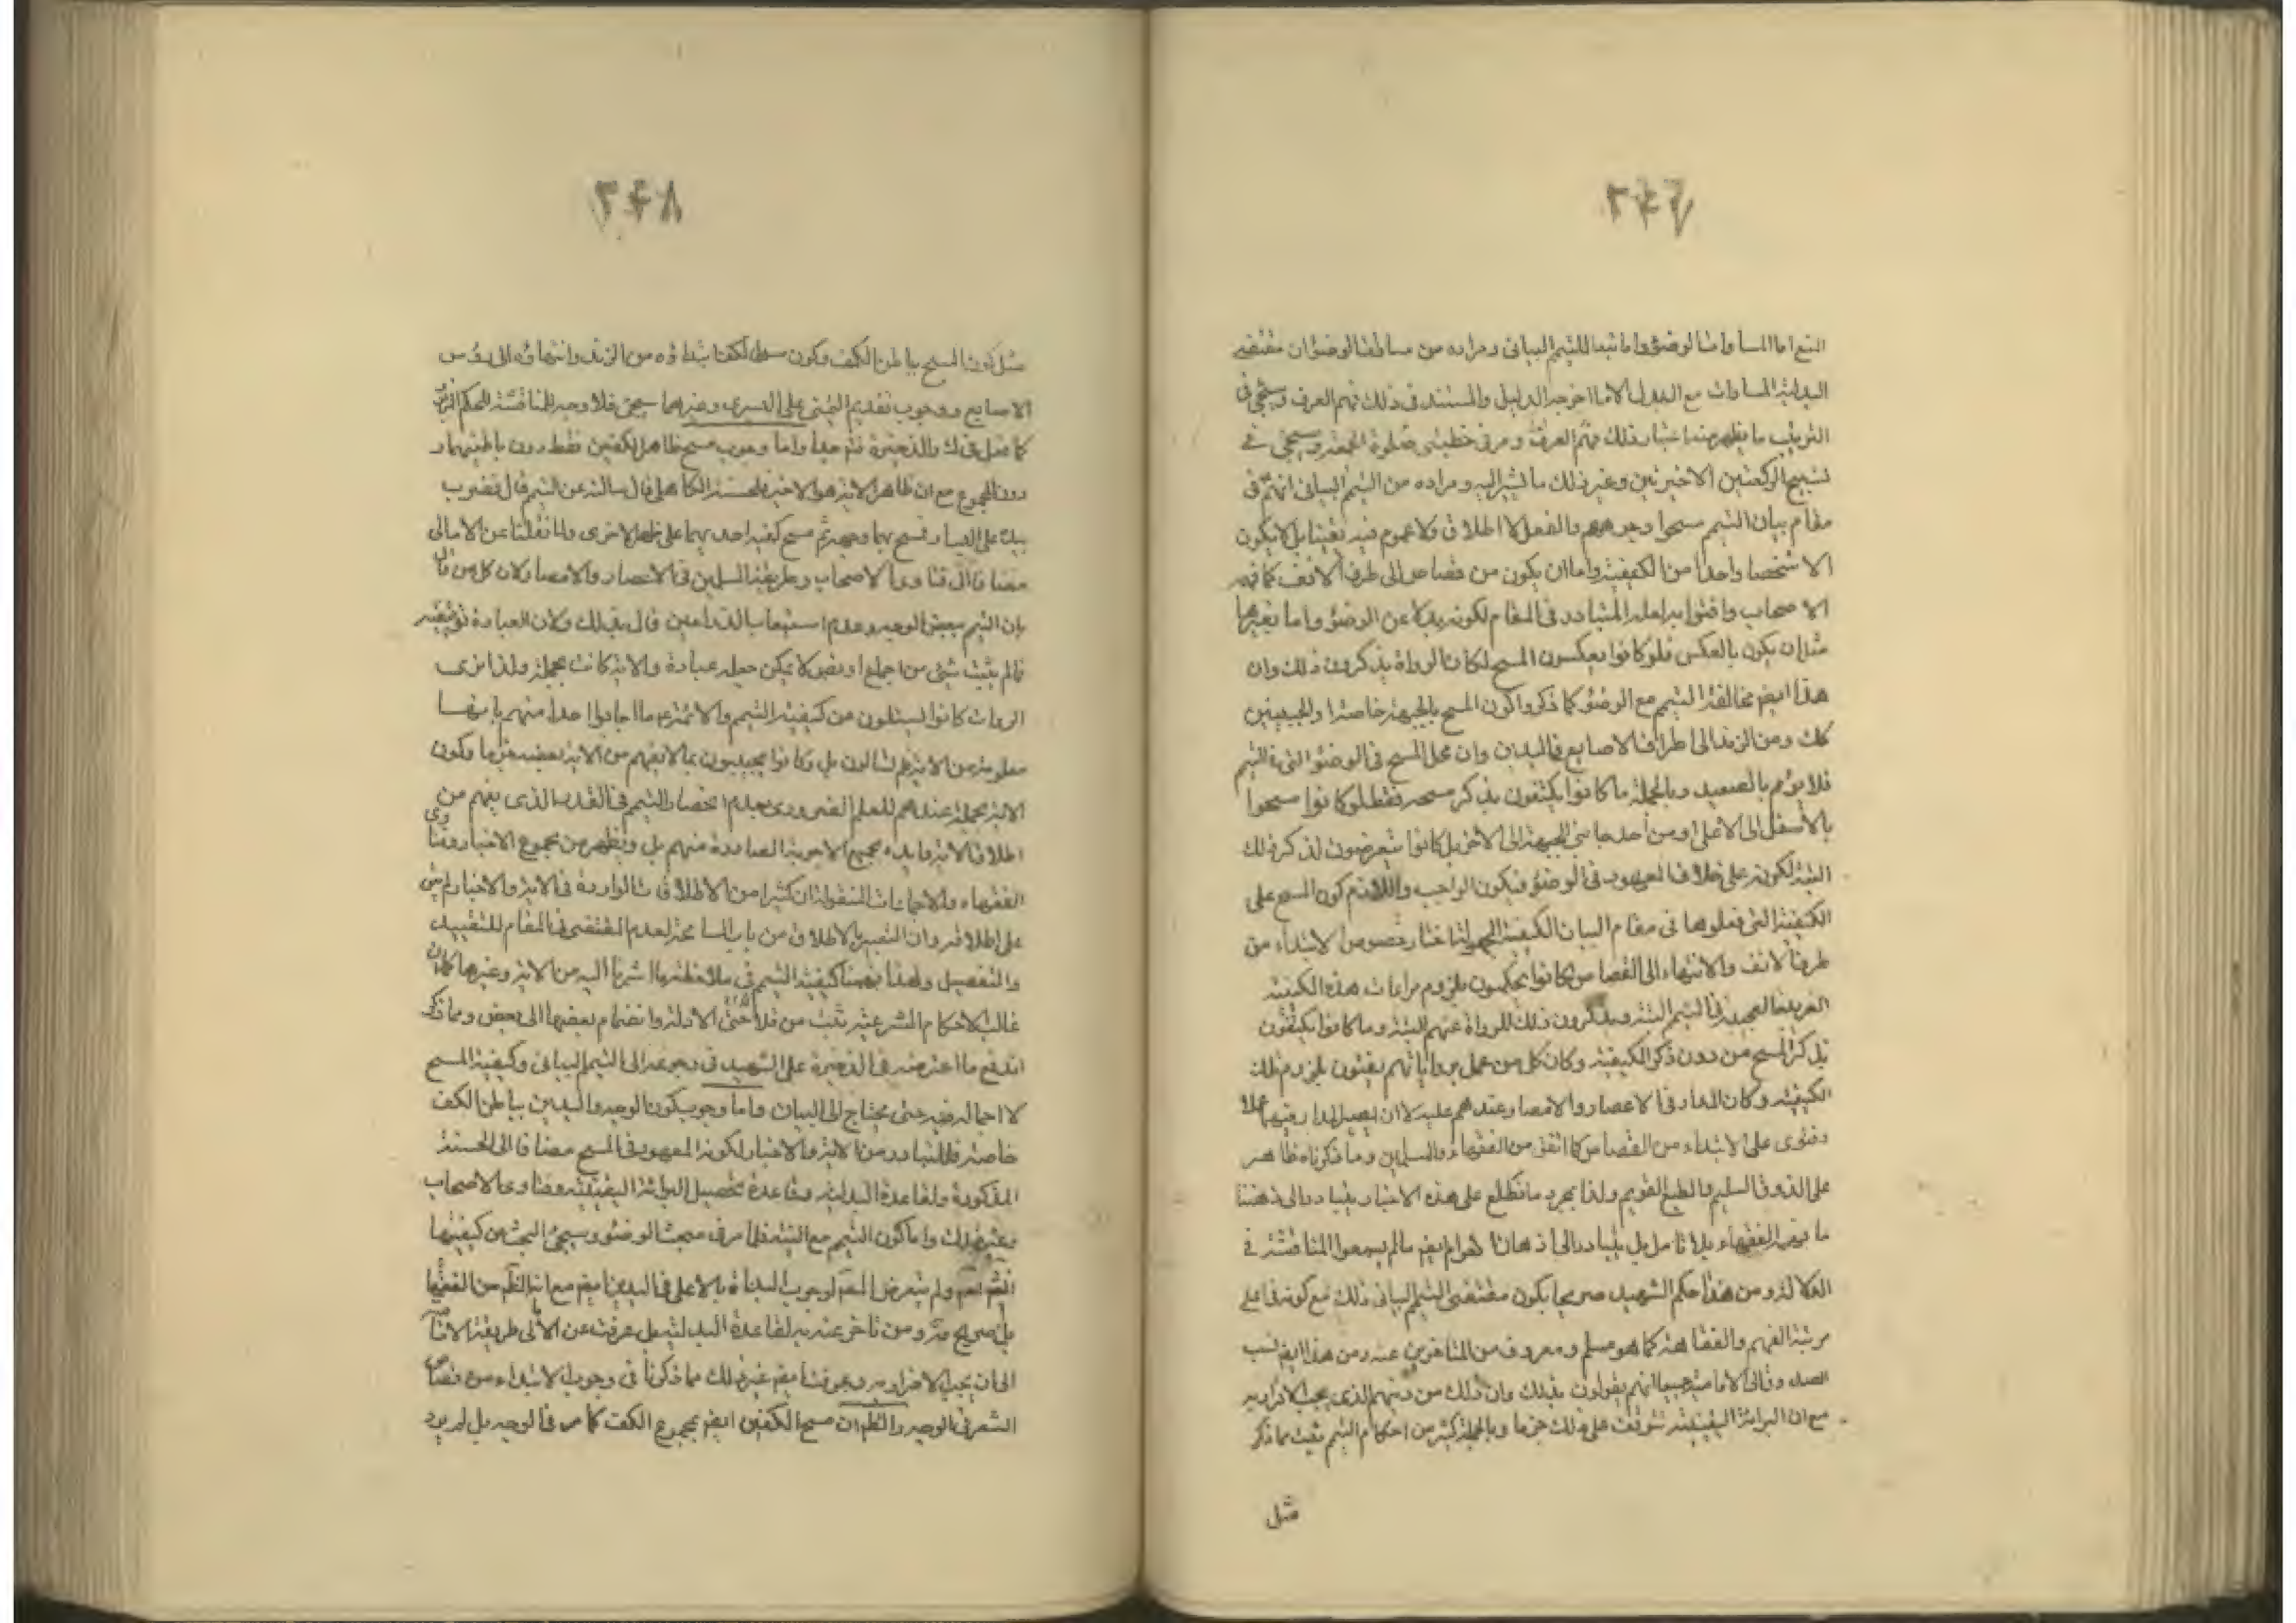 ٣٤٦
التبع اما المساوات الوضوء واما تبعا للتيمم البيانى ومراده من مساوات الوضوء ان مقتضى
البدلية المساوات مع المبدل الا ما اخرجه الدليل والمستند فى ذلك فهم العرف وسيجئ فى
الترتيب ما يظهر منه اعتبار ذلك فهم العرف ومر فى خطبتى صلوة الجمعة وسيجئ فى
تسبيح الركعتين الاخيرتين وغير ذلك ما نشير اليه ومراده من التيمم البيانى انهم فى
مقام بيان التيمم مسحوا وجوههم والفعل لا اطلاق ولا عموم فيه تعينا بل لا يكون
الا شخصا واحدا من الكيفية واما ان يكون من قصاصه الى طرف الانف كما فهم
الاصحاب وافتوا به لعله المتبادر فى المقام لكونه بدلا عن الوضوء واما بغيرها
مثل ان يكون بالعكس فلو كانوا يعكسون المسح لكان الرواة يذكرون ذلك وان
هذا ايضا مخالفة التيمم مع الوضوء كما ذكروا كون المسح بالجبهة خاصة او الجبينين
كك ومن الزند الى اطراف الاصابع فى اليدين وان محل المسح فى الوضوء التى التيمم
فلا يؤم بالصعيد وبالجملة ما كانوا يكتفون بذكر مسحه فقط لو كانوا مسحوا
بالاسفل الى الاعلى او من احد جانبى الجبهة الى الاخر بل كانوا يتعرضون لذكر ذلك
البتة لكونه على خلاف المعهود فى الوضوء فيكون الواجب واللازم كون المسح على
الكيفية التى فعلوها فى مقام البيان الكيفية المجهولة اختار خصوص الابتداء من
طرف الانف والانتهاء الى القصاص لكانوا يحكمون بلزوم مراعات هذه الكيفية
الغريبة العجيبة فى التيمم البتة ويذكرون ذلك للرواة عنهم البتة وما كانوا يكتفون
بذكر المسح من دون ذكر الكيفية وكان كل من عمل برواياتهم يفتون بلزوم تلك
الكيفية وكان المدار فى الاعصار والامصار عندهم عليه لا ان يصير المدار فيهما عملا
وفتوى على الابتداء من القصاص كما اتفق من الفقهاء والمسلمين وما ذكرناه ظاهر
على الذوق السليم والطبع القويم ولذا بمجرد ما نطلع على هذه الاخبار يتبادر الى ذهننا
ما فهمه الفقهاء بلا تامل بل يتبادر الى اذهان العوام ايضا ما لم يسمعوا المناقشة فى
الدلالة ومن هذا حكم الشهيد صريحا بكون مقتضى التيمم البيانى ذلك مع كونه فى اعلى
مرتبة الفهم والفقاهة كما هو مسلم ومعروف من المتاخرين عنه ومن هذا ايضا نسب
الصدوق الى الامامية جميعا انهم يقولون بذلك وان ذلك من دينهم الذى يجب الاقرار به
مع ان البرائة اليقينية تتوقف على ذلك جزما وبالجملة كثير من احكام التيمم تثبت بما ذكر
مثل
٣٤٨
مثل كون المسح بباطن الكف وكون مسح الكف ابتداؤه من الزند وانتهاؤه الى رؤس
الاصابع ووجوب تقديم اليمنى على اليسرى وغيرهما سيجئ فلا وجه للمناقشة فى الحكم
كما فعل فى ك والذخيرة فتم جدا واما وجوب مسح ظاهر الكفين فقط دون باطنهما و
دون المجموع مع ان ظاهر الاية هو الاخير فلحسنة الكاهلى قال سالته عن التيمم قال فضرب
بيده على البساط فمسح بهما وجهه ثم مسح كفيه احديهما على ظهر الاخرى ولما نقلنا عن الامالى
مضافا الى فتاوى الاصحاب وطريقة المسلمين فى الاعصار والامصار ولان كل من قال
بان التيمم ببعض الوجه وعدم استيعاب الذراعين قال بذلك ولان العبادة توقيفية
فما لم يثبت شئ من اجماع او نص لا يمكن جعله عبادة والاية كانت مجملة ولذا نرى
الروات كانوا يسئلون عن كيفية التيمم والائمة ع ما اجابوا احدا منهم بانها
معلومة من الاية فلم تسالون بل وكانوا يجيبون بما لا يفهم من الاية بعضه جزما وكون
الاية مجملة عندهم للعلم الضرورى بعدم انحصار التيمم فى القدر الذى يفهم من
اطلاق الاية وابداء جميع الاجوبة الصادرة منهم بل ويظهر من مجموع الاخبار وفتاوى
الفقهاء والاجماعات المنقولة ان كثيرا من الاطلاقات الواردة فى الاية والاخبار ليس
على اطلاقه وان التعبير بالاطلاق من باب المسامحة لعدم المقتضى فى المقام للتقييد
والتفصيل ولهذا فهمنا كيفية التيمم فى ملاحظتها اشرنا اليه من الاية وغيرها كما ان
غالب الاحكام الشرعية تثبت من تلاحق الادلة وانضمام بعضها الى بعض ومما ذكر
اندفع ما اعترضه فى الذخيرة على الشهيد فى رجوعه الى التيمم البيانى وكيفية المسح
لا اجمال فيه حتى يحتاج الى البيان واما وجوب كون الوجه واليدين بباطن الكف
خاصة فللتبادر من الاية والاخبار لكونه المعهود فى المسح مضافا الى الحسنة
المذكورة ولقاعدة البدلية وقاعدة تحصيل البرائة اليقينية وفتاوى الاصحاب
وغير ذلك واما كون التيمم مع النية فلما مر فى مبحث الوضوء وسيجئ البحث عن كيفيتها
انشاء الله تعالى ولم يتعرض المصنف لوجوب البدأة بالاعلى فى اليدين ايضا مع انه الظاهر من الفقهاء
بل صريح ومن تاخر عنه لقاعدة البدلية بل عرفت عن الامالى طريقة الامامية
الى ان يجب الاقرار به وعرفت ايضا غير ذلك مما ذكرنا فى وجوب الابتداء من قصاص
الشعر فى الوجه والظاهر ان مسح الكفين ايضا بمجموع الكف كما مر فى الوجه بل لم يرد